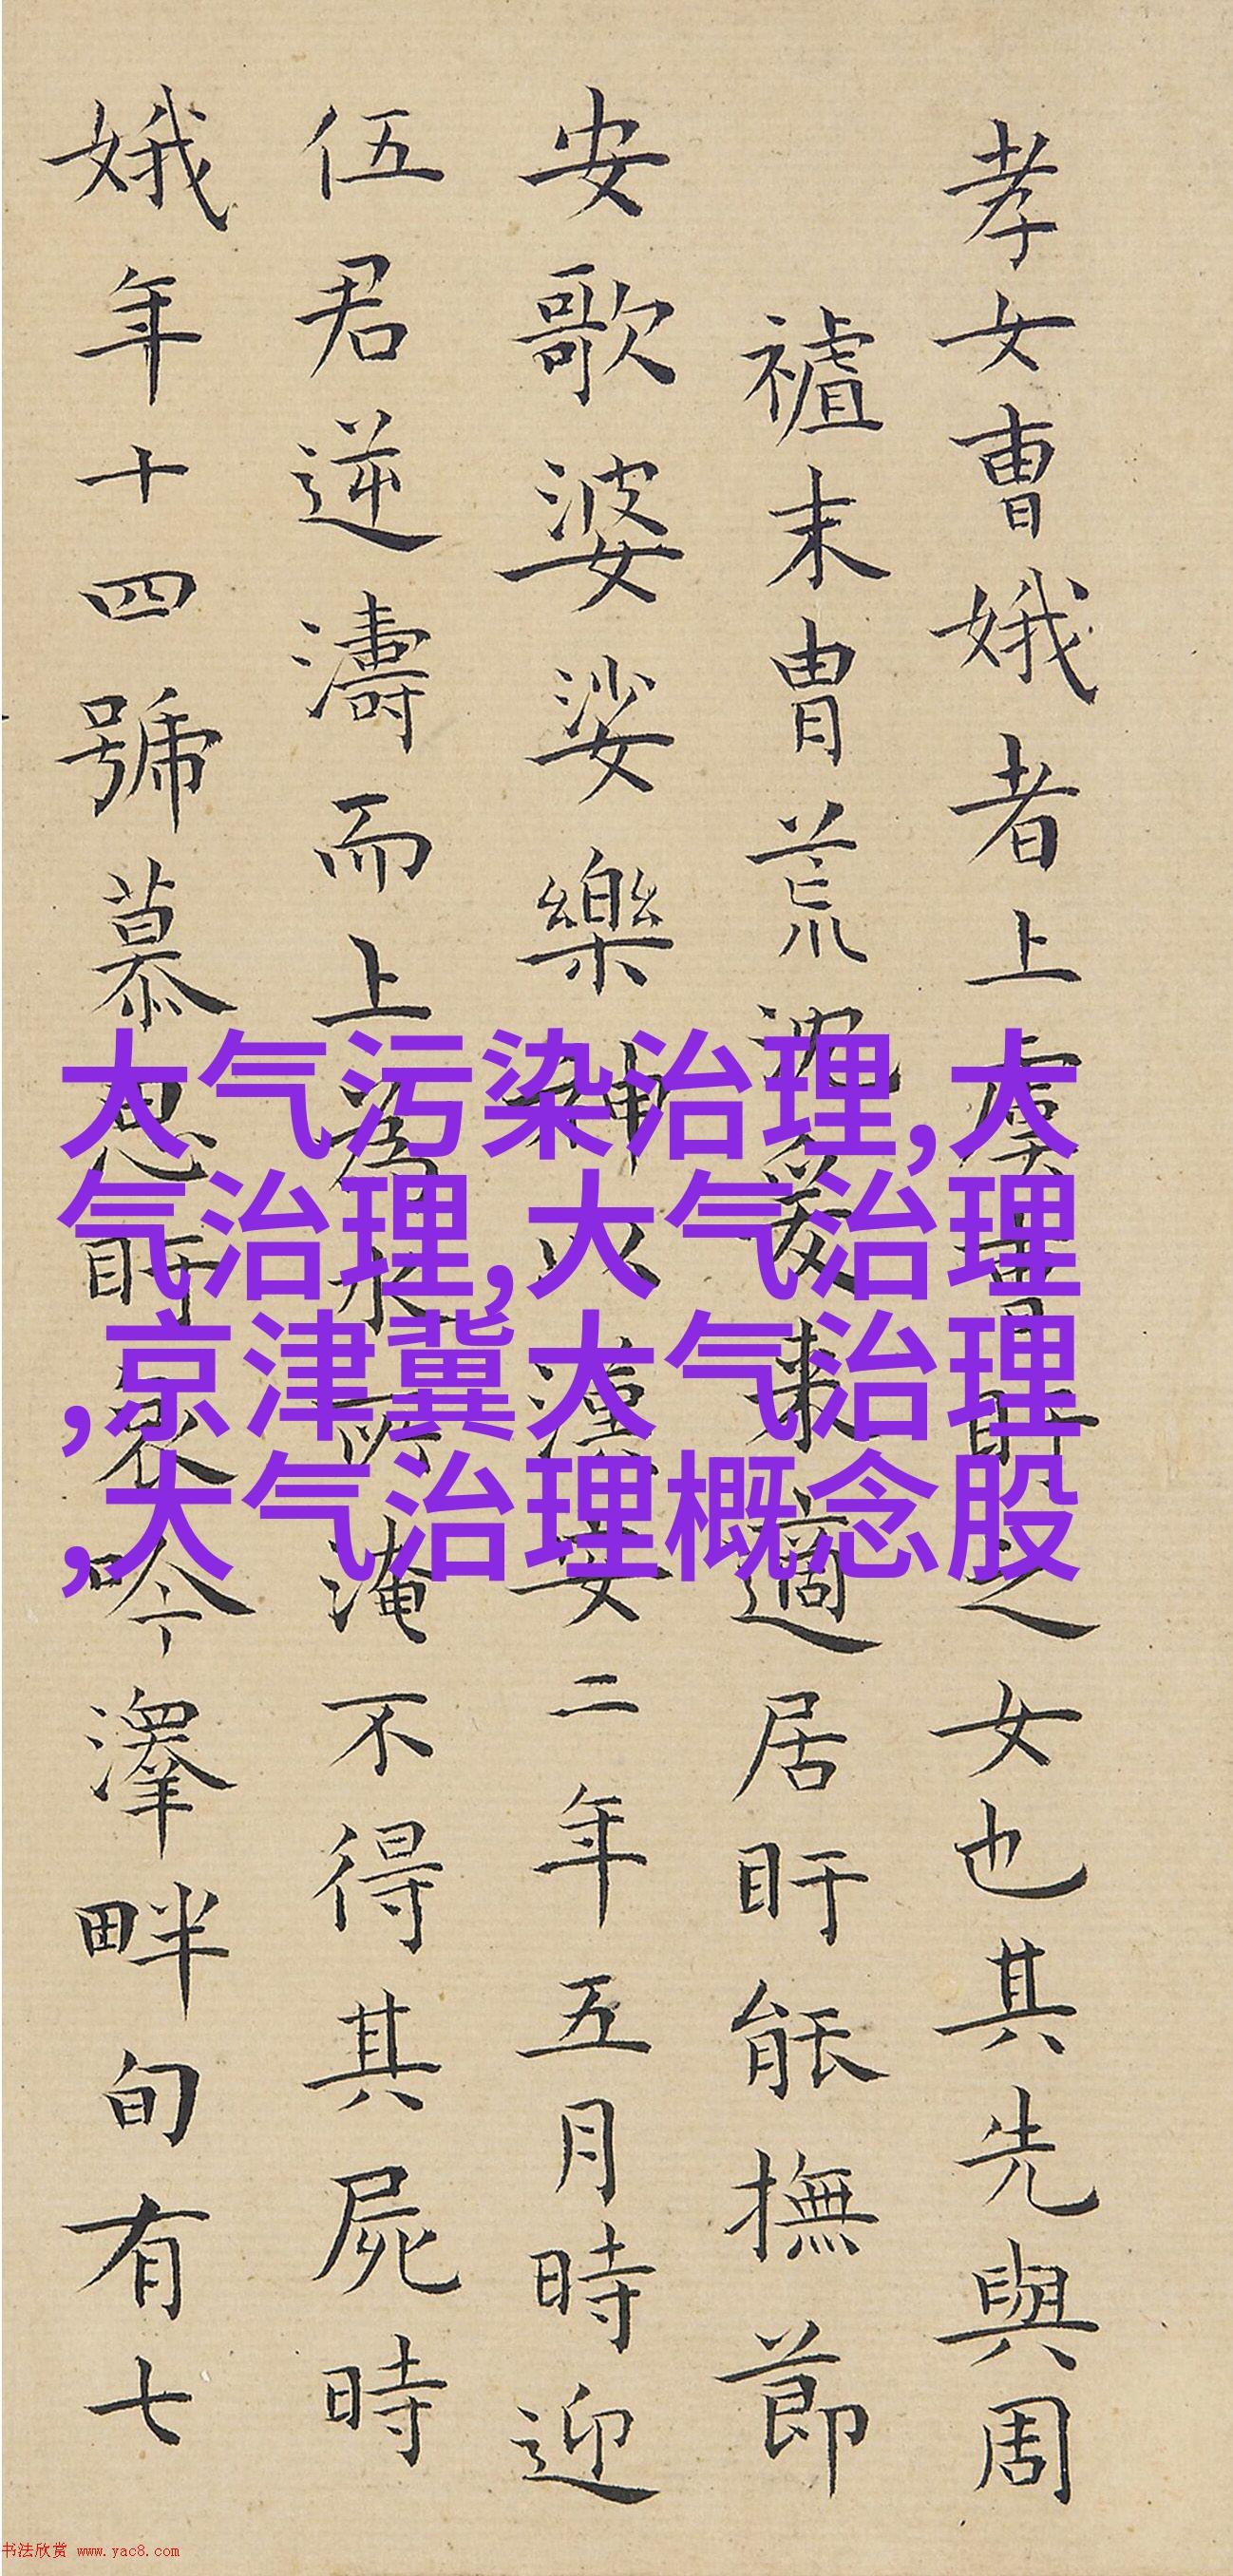 孝女曹娥者上虞曹盱之女也其先與周
末胄荒沉爰来適居盱能撫節
安歌婆娑樂神以漢安二年五月時迎
伍君逆濤而上爲水所淹不得其屍時
娥年十四號慕思盱哀吟澤畔旬有七
大气污染治理,大
气治理,大气治理
,京津冀大气治理
,大气治理概念股
书法欣赏 www.yac8.com